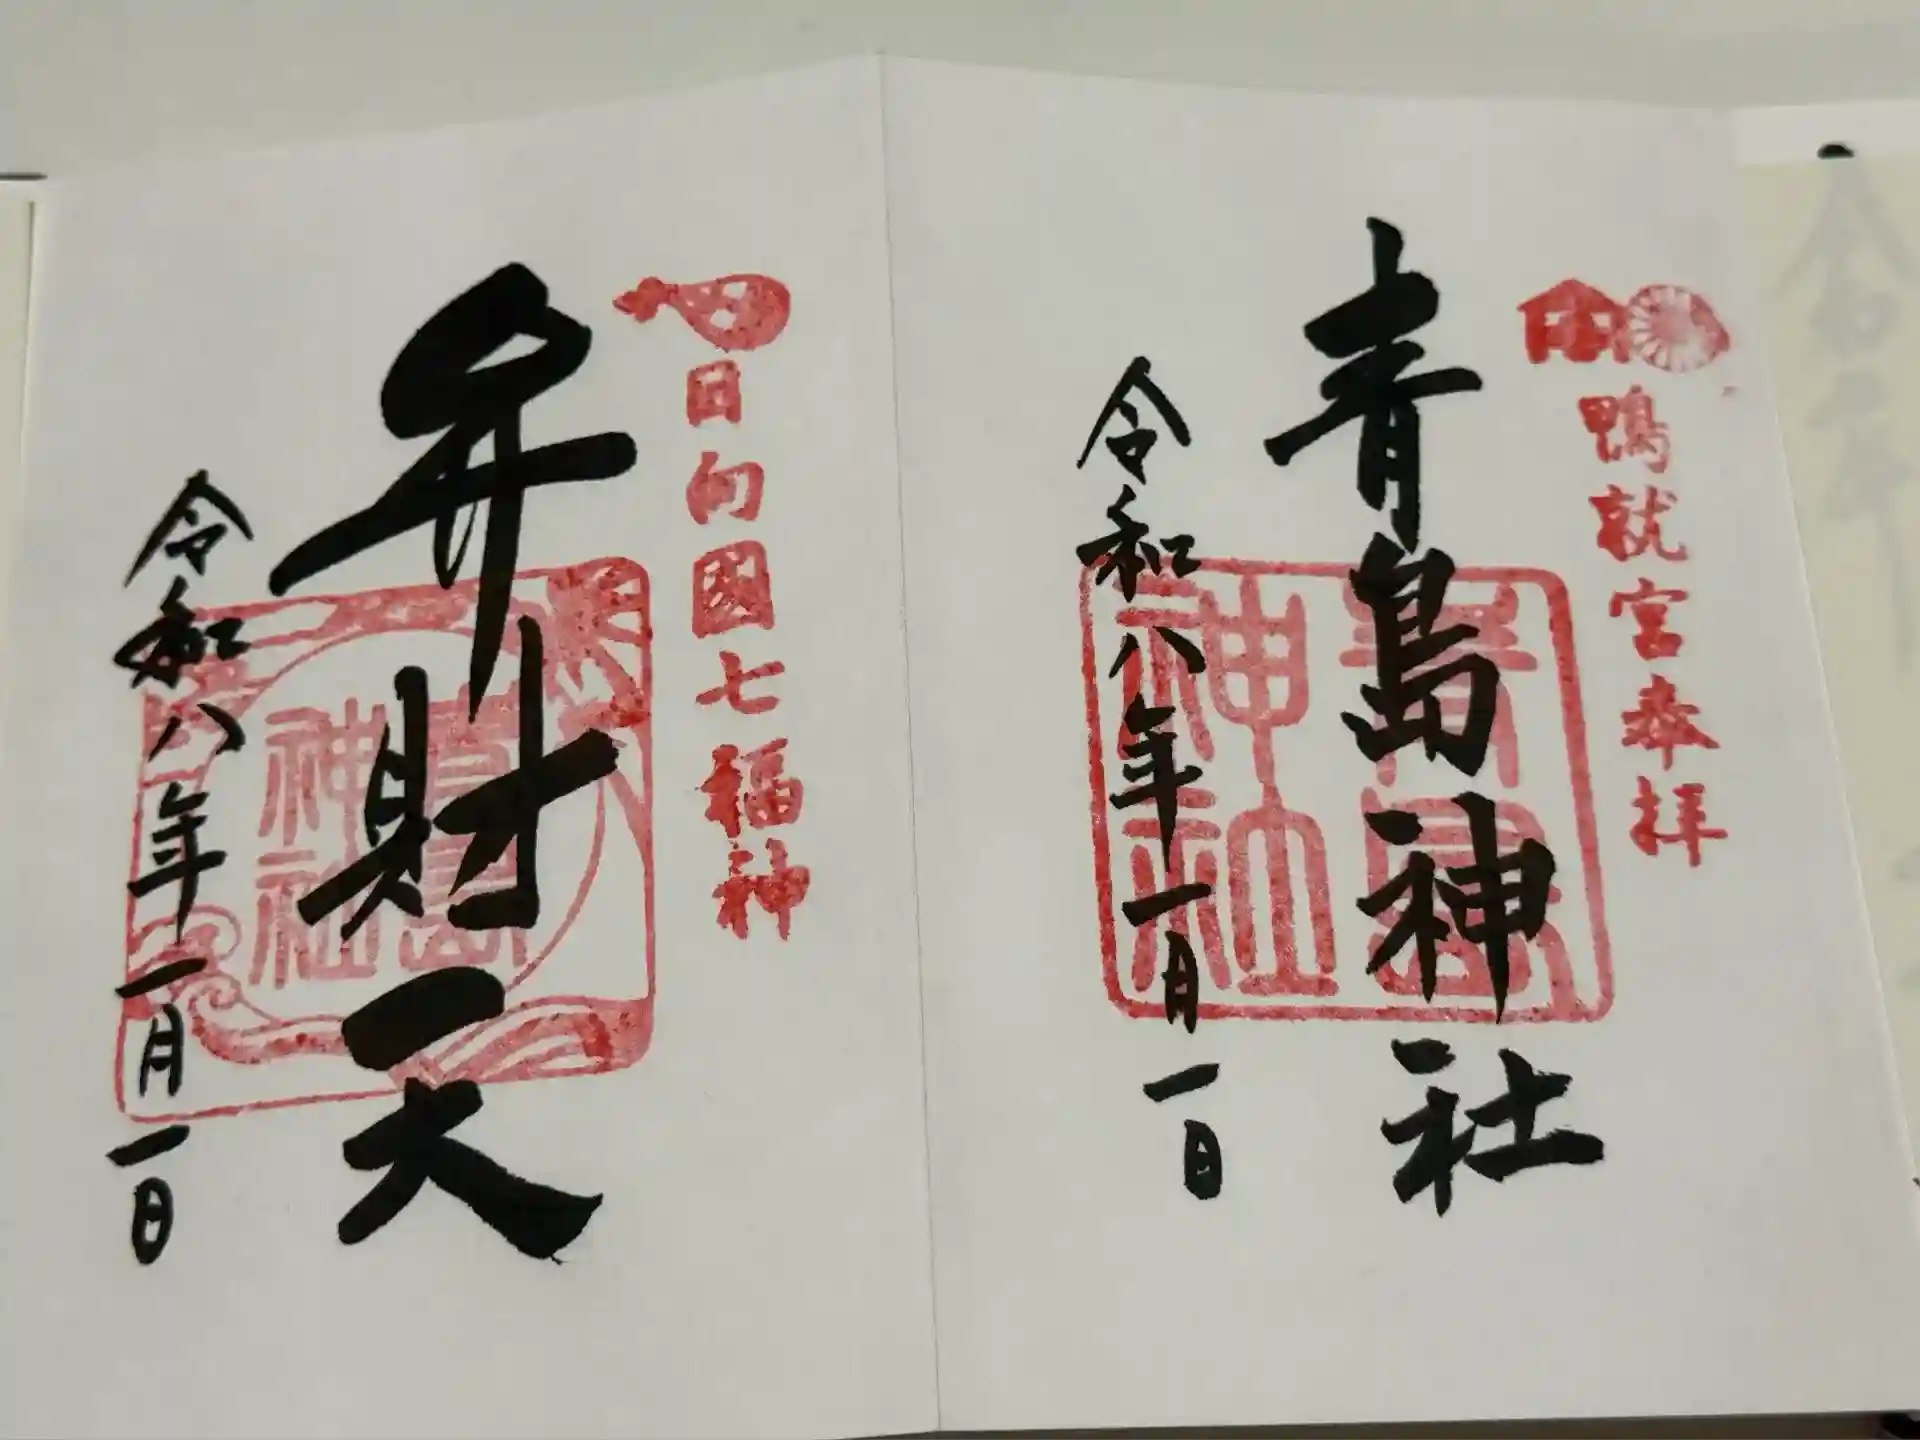 鴨就宮奉拝
青島神社
青島
神社
令和八年一月一日
日向國七福神
弁財天
青島
神社
令和八年一月一日